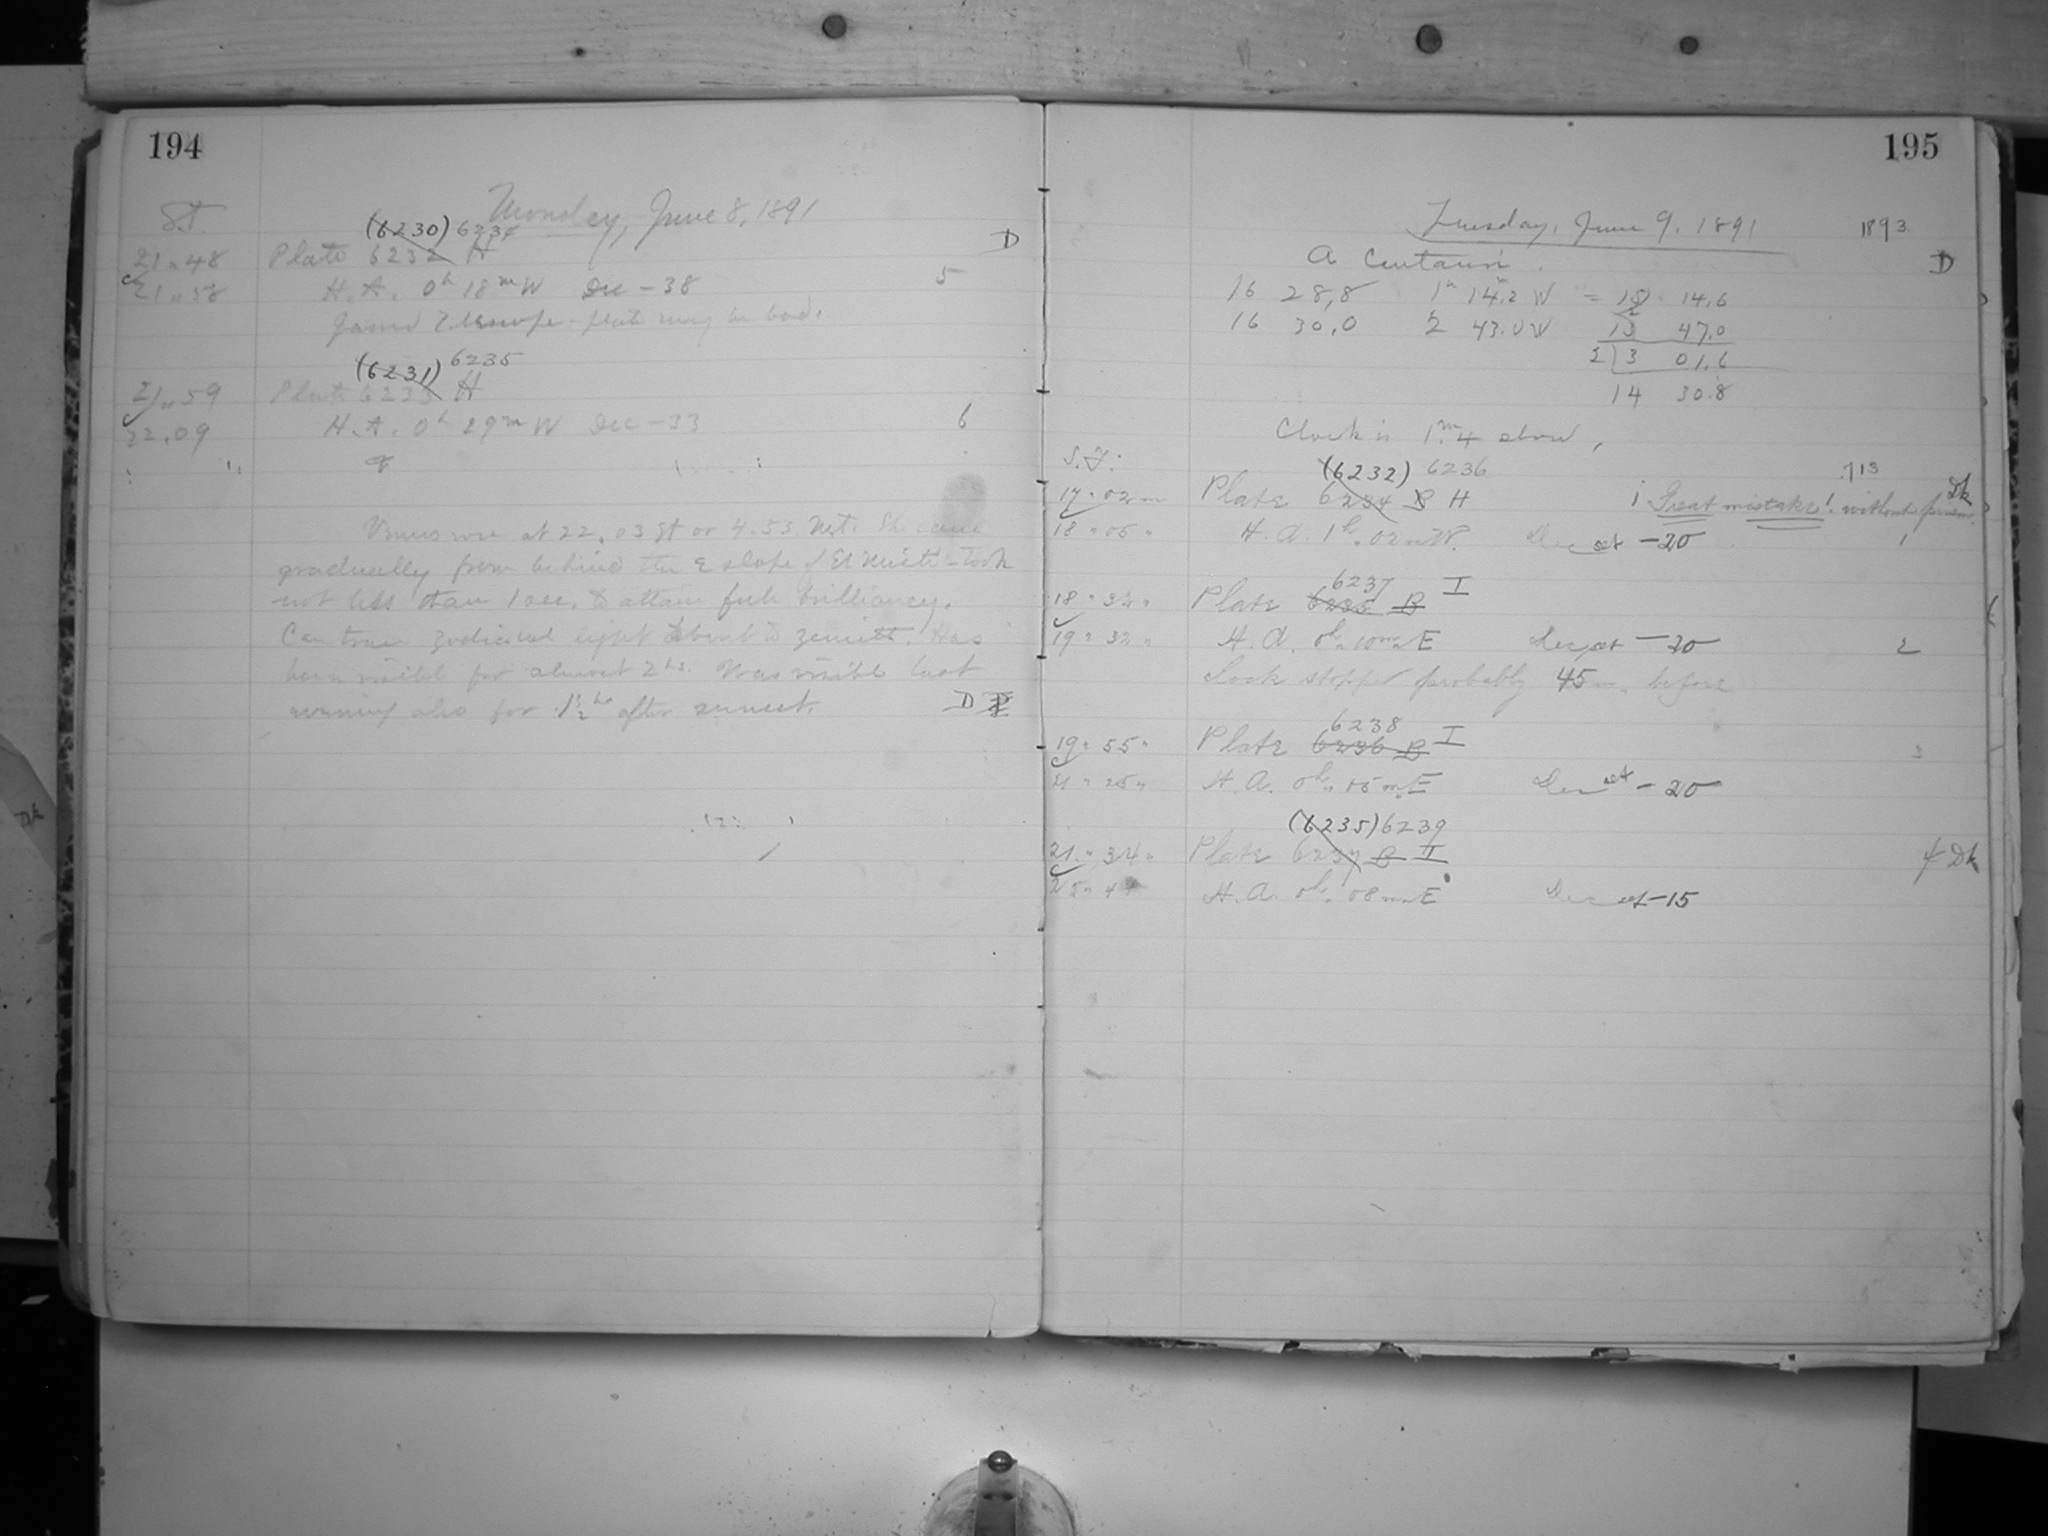 194
Monday, June 8, 1891
S.T.
(6230) 6234
21 48 Plate 6232 H D
21 58 H.A. 0h 18m W Dec -38 5
plate may be bad.
(6231) 6235
21 59 Plate 6233 H
22.09 H.A. 0h 29m W Dec -33 6
Venus rose at 22.03 St or 4.53 She came
gradually from behind the slope of El Misti - took
not less than 1 sec. to attain full brilliancy.
Can trace zodiacal light about to zenith. Has
been visible for almost 2 hs. Was visible last
evening also for 1 1/2 hs after sunset. D
195
Tuesday, June 9, 1891 1893
α Centauri. D
16 28,8 1h 14m.2 W = 15 14.6
16 30,0 2 43.0 W 13 47.0
2 | 3 01.6
14 30.8
Clock is 1m.4 slow,
S.T.
(6232) 6236 713
17 02m Plate 6234 B H Great mistake! without prism Dk
18 05 H.A. 1h 02m W. Dec set -20 1
6237 I
18 32 Plate 6235 B
19 32 H.A. 0h 10m E Dec set -20 2
Clock stopped probably 45m before
6238 I
19 55 Plate 6236 B 3
21 25 H.A. 0h 15m E Dec set -20
(6235) 6239
21 34 Plate 6237 B I 4 Dk
H.A. 0h 08m E Dec set -15